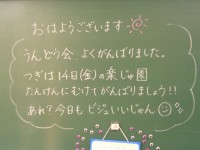 おはようございます
うんどう会 よくがんばりました。
つぎは14日(金)の楽じゅ園
たんけんにむけてがんばりましょう!!
あれ?今日もビジュいいじゃん